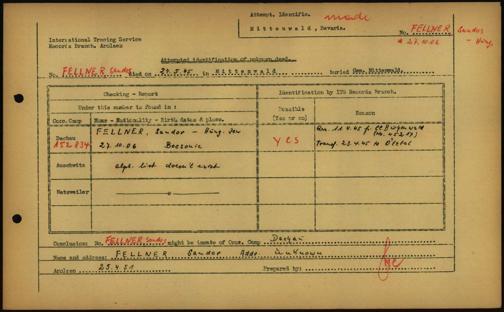 Attempt. Identific. made
Mittenwald, Bavaria.
No. FELLNER Sandor
* 27.10.06 - Hung.
International Tracing Service
Records Branch, Arolsen
Attempted identification of unknown dead.
No. FELLNER Sandor died on 2.5.45 in Mittenwald buried Gem. Mittenwald.
Checking - Report
Identification by ITS Records Branch.
Under this number is found in :
Possible
(Yes or no)
Reason
Conc. Camp
Name - Nationality - Birth, dates & place.
Dachau
152 834
FELLNER, Sandor - Hung. Jew
27.10.06
yes
Arr. 11.4.45 f. CC
Transf. 23.4.45 to Ötztal
Auschwitz
alph. list doesn't exist
Natzweiler
Conclusion: No. FELLNER Sandor might be inmate of Conc. Camp Dachau
Name and address: FELLNER Sandor Addr. unknown
Arolsen 25.4.51 Prepared by: